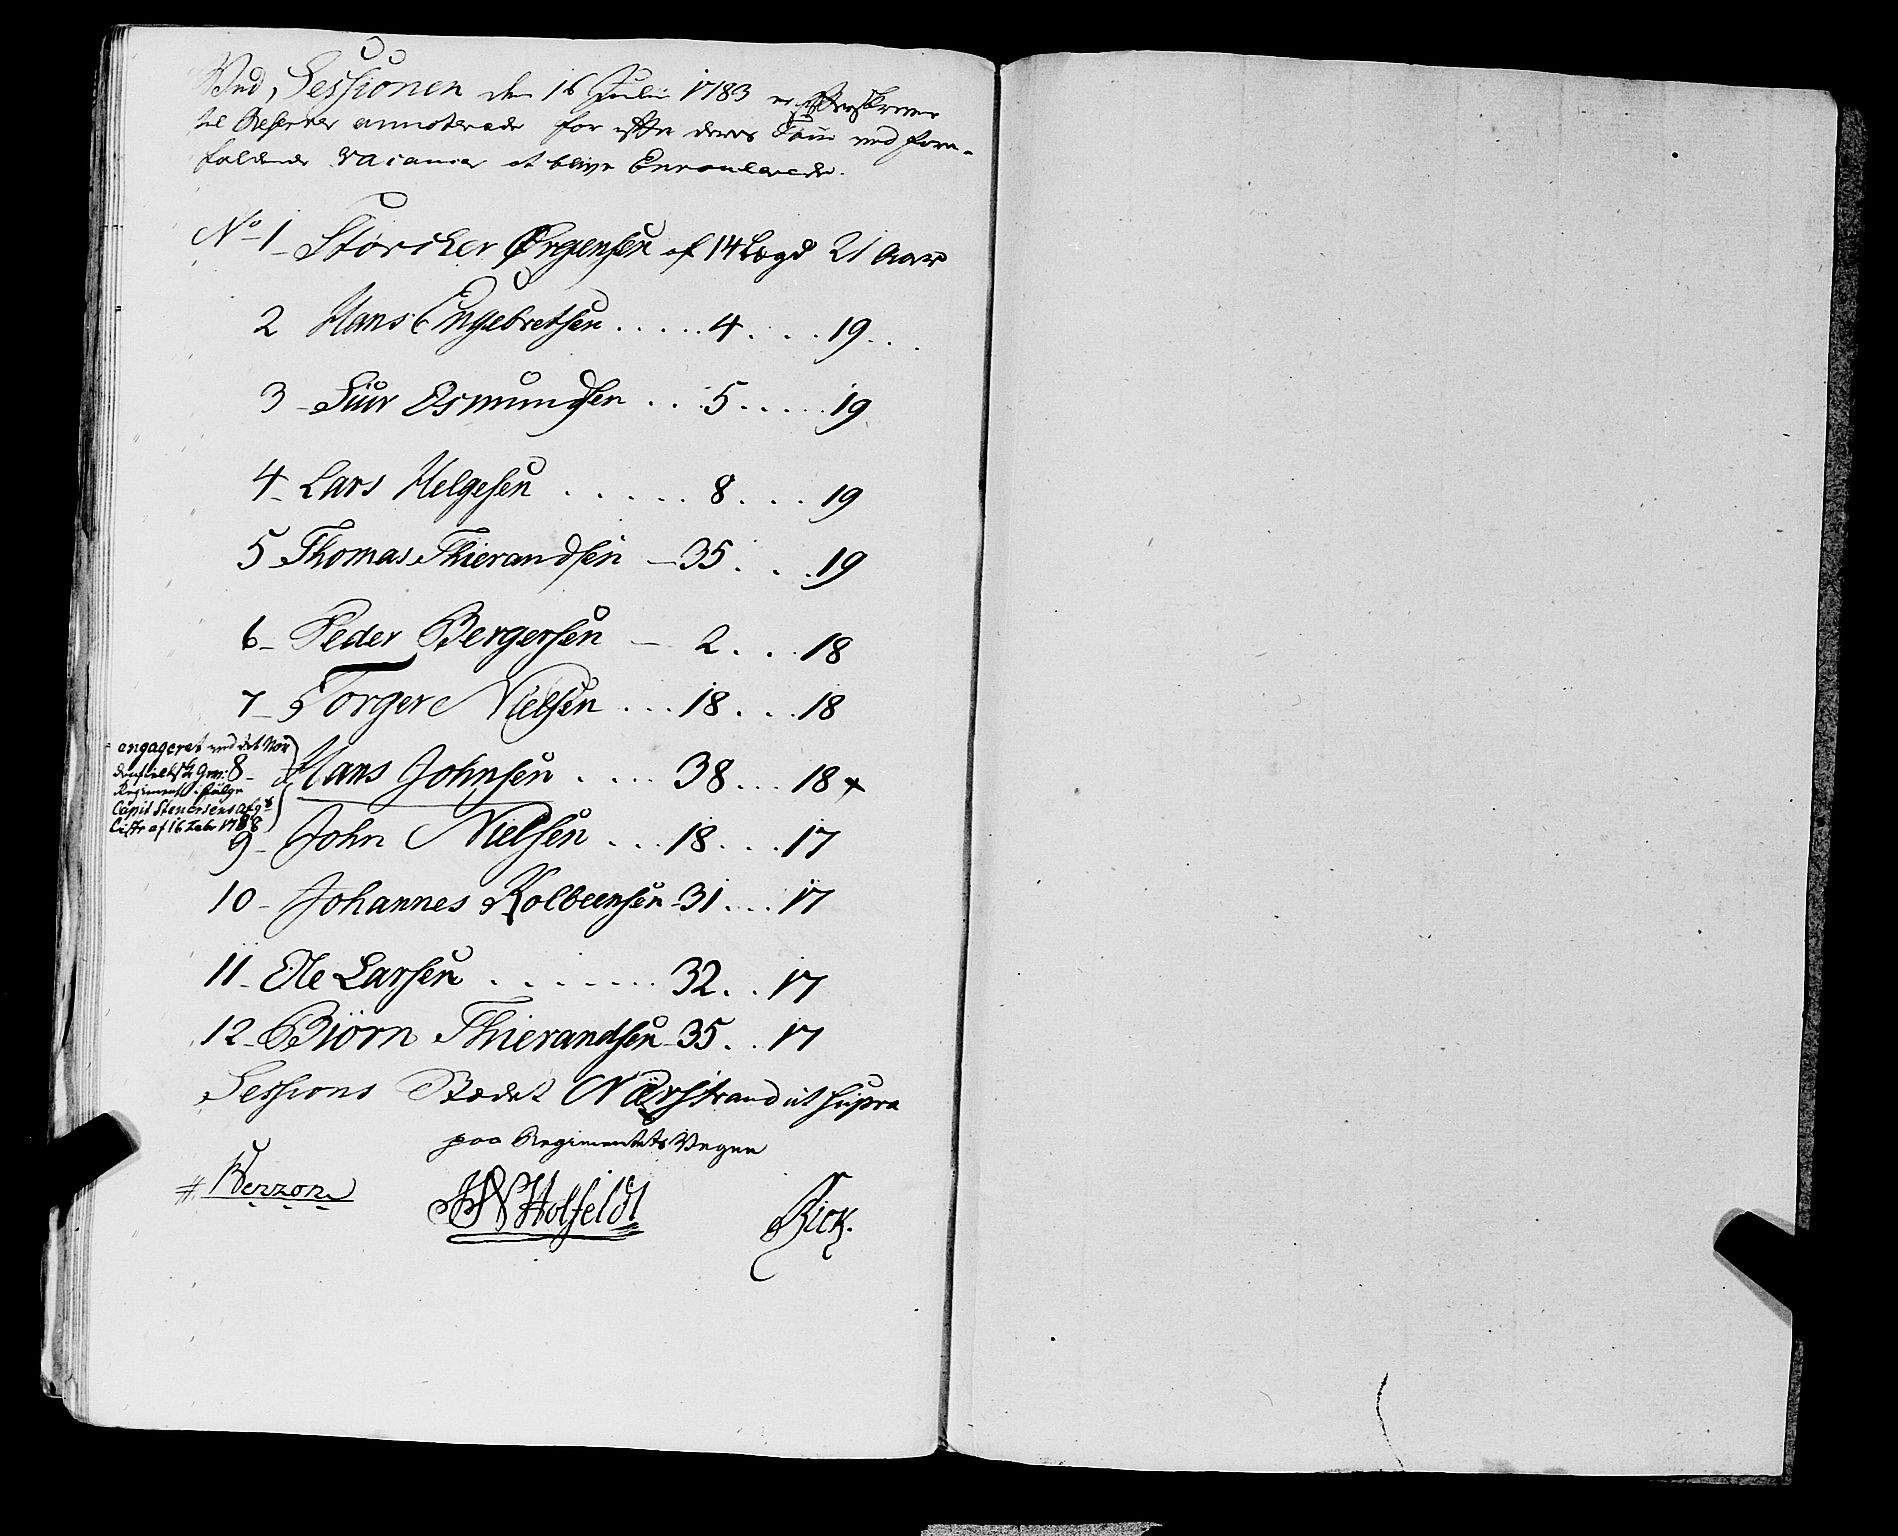 Ved Sessionen den 16 Julii 1783 er efterskrevne
til Reserver annoterede for efter deres Tour ved fore-
faldende Vacancer at blive Enroulerede.
No 1 - Störcker Örgensen af 14 Lægd 21 Aar
2 Hans Engebretsen . . . . . 4 . . . . 19 . . .
3 - Siur Osmundsen . . . 5 . . . . . 19
4 - Lars Helgesen . . . . . . 8 . . . . 19
5 Thomas Thierandsen - 35 . . . 19
6 - Peder Bergersen - 2 . . . 18
7 - Torger Nielsen . . . 18 . . . 18
engageret ved det Nor
denfieldske Gev:
Regiment i følge
Capit Stenersens Afg:s
Liste af 16 Febr 1788
8 - Hans Johnsen . . . . 38 . . . 18 +
9 - John Nielsen . . . 18 . . . . 17
10 - Johannes Kolbeensen - 31 . . . . 17
11 - Ole Larsen . . . . . . . 32 . . 17
12 - Biörn Thierandsen - 35 . . 17
Sessions Stædet Nærstrand ut supra
paa Regimentets Vegne
Holfeldt